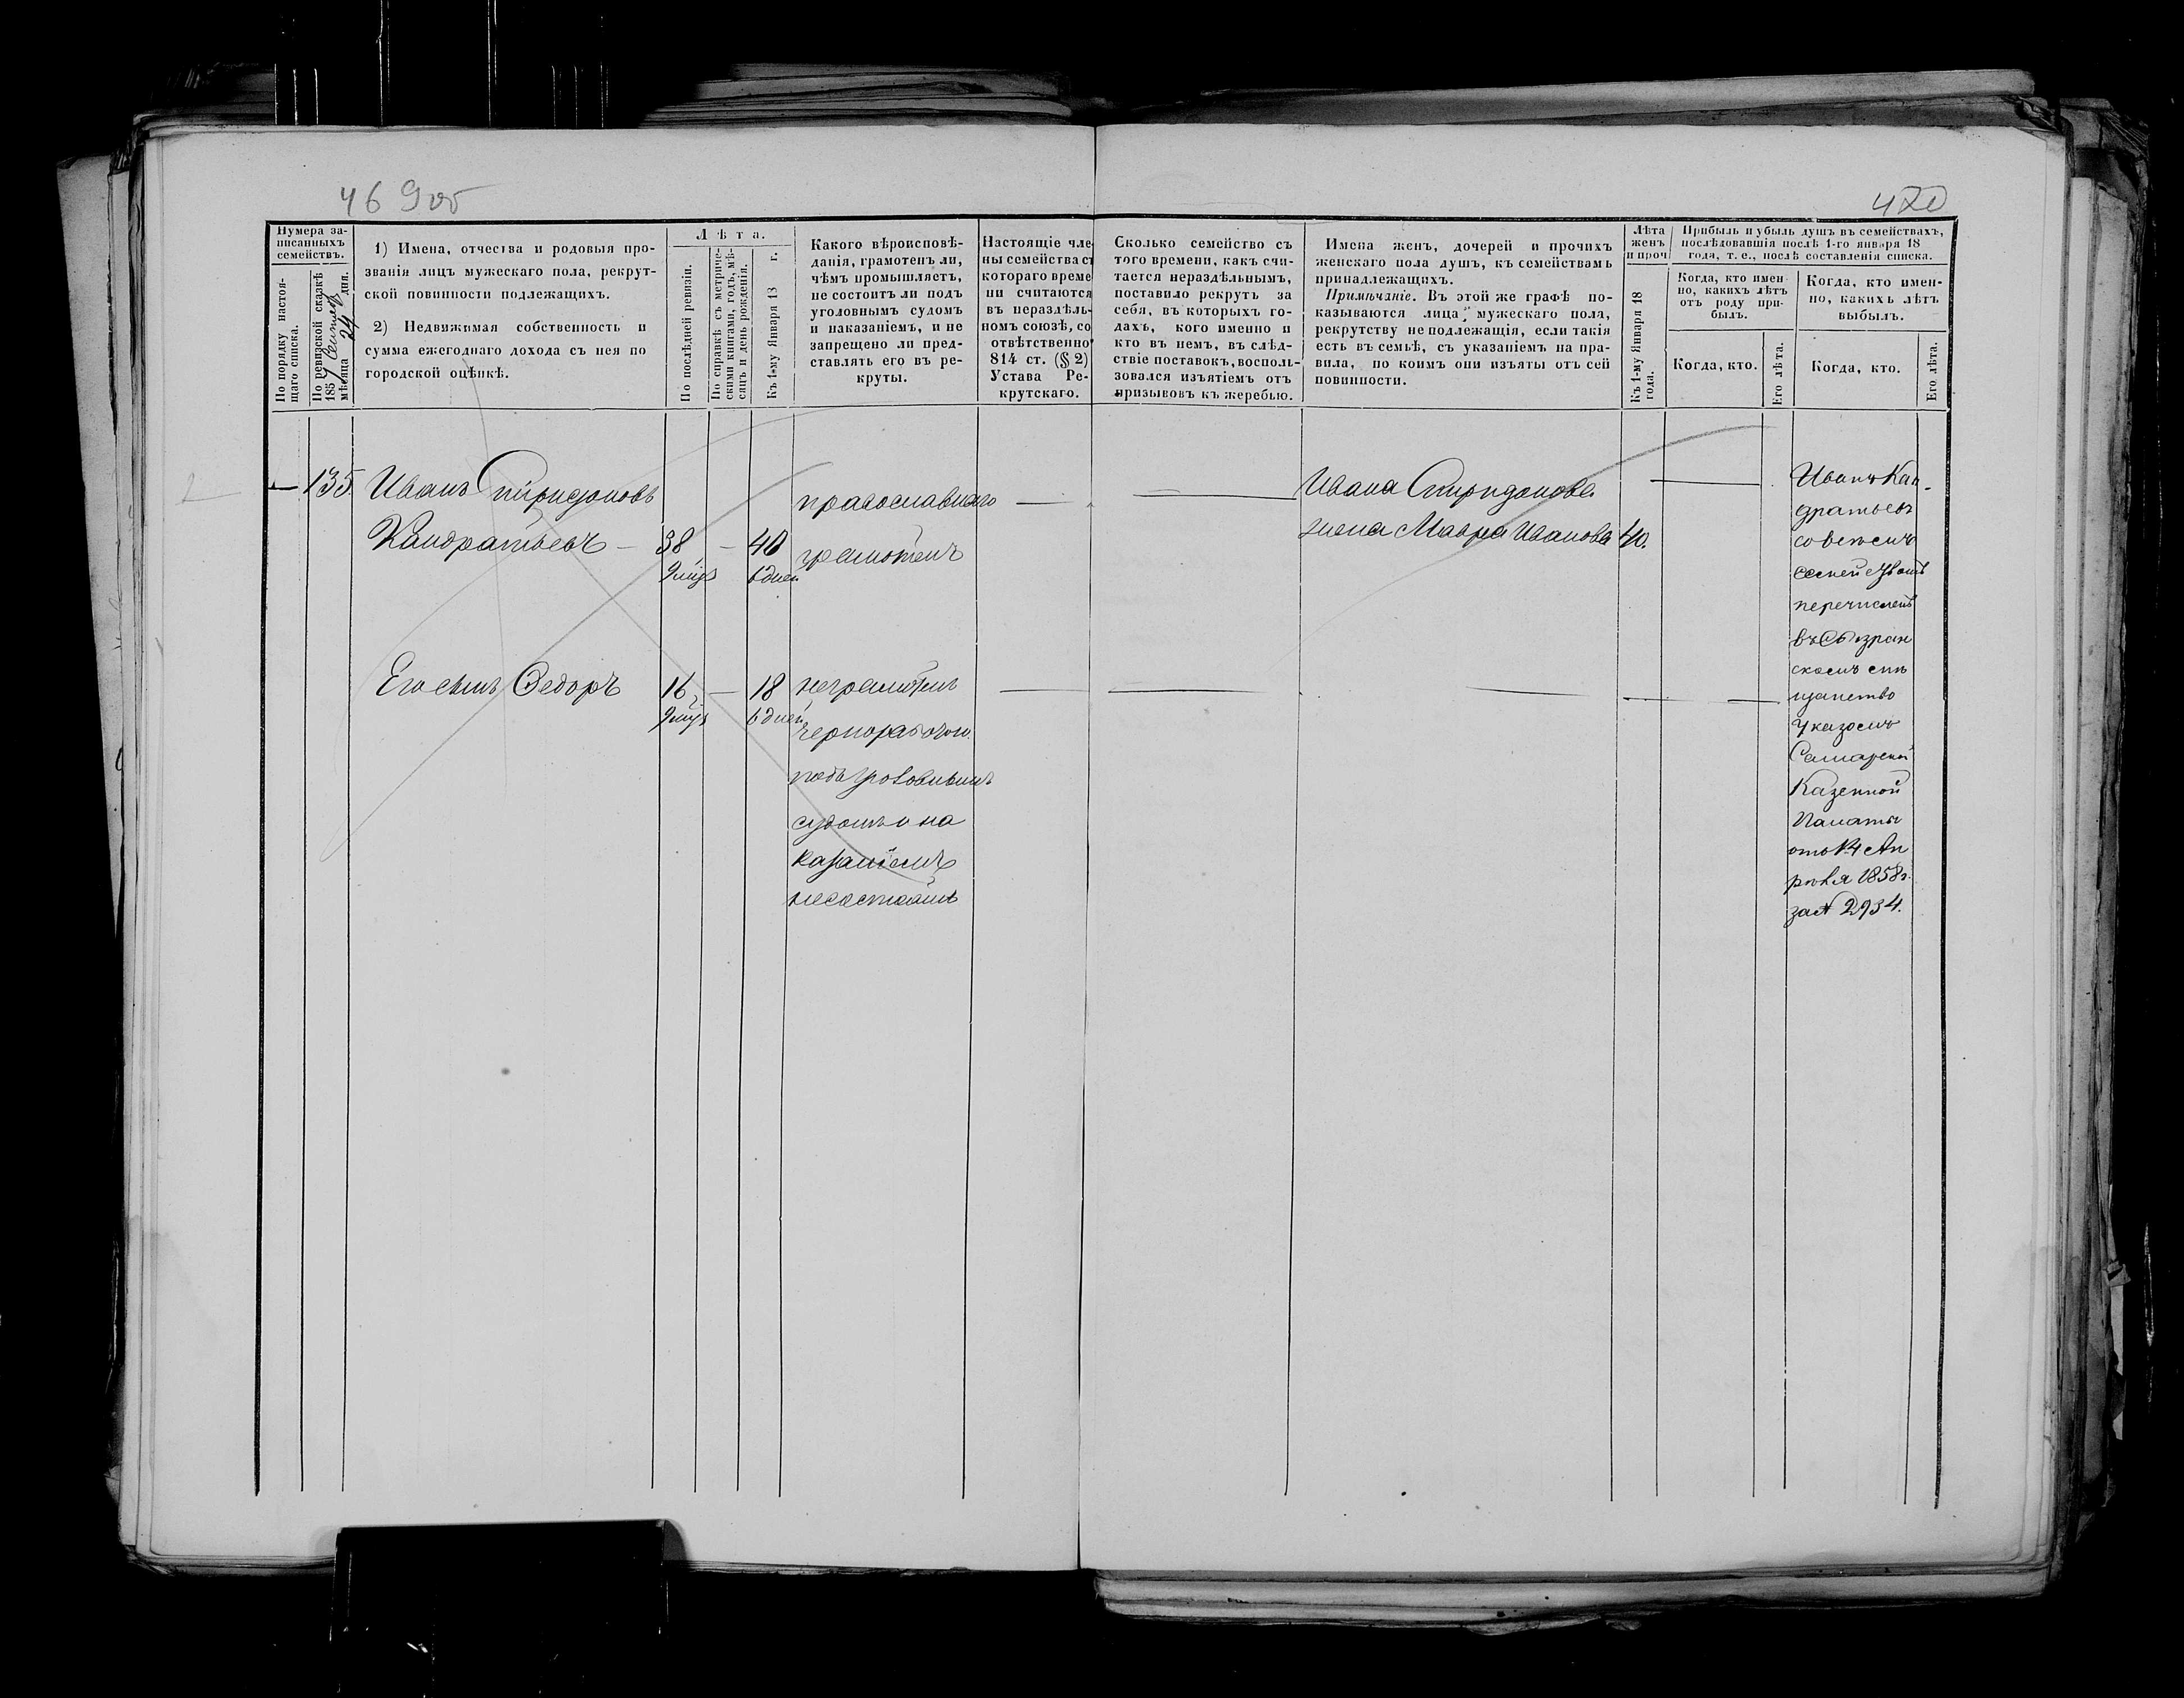 469 об
470
Нумера за-
писанныхъ
семействъ.
По порядку настоя-
щаго списка.
По ревизской сказкѣ
1857 Сентября
мѣсяца 24 дня.
1) Имена, отчества и родовыя про-
званія лицъ мужескаго пола, рекрут-
ской повинности подлежащихъ.
2) Недвижимая собственность и
сумма ежегоднаго дохода съ нея по
городской оцѣнкѣ.
Лѣта.
По послѣдней ревизіи.
По справкѣ съ метриче-
скими книгами, годъ, мѣ-
сяцъ и день рожденія.
Къ 1-му Января 18 г.
Какого вѣроисповѣ-
данія, грамотенъ ли,
чѣмъ промышляетъ,
не состоитъ ли подъ
уголовнымъ судомъ
и наказаніемъ, и не
запрещено ли пред-
ставлять его въ ре-
круты.
Настоящіе чле
ны семейства съ
котораго време
ни считаются
въ нераздѣль-
номъ союзѣ, со
отвѣтственно
814 ст. (§ 2)
Устава Ре-
крутскаго.
Сколько семейство съ
того времени, какъ счи-
тается нераздѣльнымъ,
поставило рекрутъ за
себя, въ которыхъ го-
дахъ, кого именно и
кто въ немъ, въ слѣд-
ствіе поставокъ, восполь-
зовался изъятіемъ отъ
призывовъ къ жеребью.
Имена женъ, дочерей и прочихъ
женскаго пола душъ, къ семействамъ
принадлежащихъ.
Примѣчаніе. Въ этой же графѣ по-
казываются лица мужескаго пола,
рекрутству не подлежащія, если такія
есть въ семьѣ, съ указаніемъ на пра-
вила, по коимъ они изъяты отъ сей
повинности.
Лѣта
женъ
и проч
Къ 1-му Января 18
года.
Прибыль и убыль душъ въ семействахъ,
послѣдовавшія послѣ 1-го января 18
года, т. е., послѣ составленія списка.
Когда, кто имен-
но, какихъ лѣтъ
отъ роду при-
былъ.
Когда, кто.
Его лѣта.
Когда, кто имен-
но, какихъ лѣтъ
выбылъ.
Когда, кто.
Его лѣта.
135 Иванъ Спиридоновъ
Кандратьевъ — 38 — 40
9 мцъ 6 дней
православнаго
грамотенъ
Ивана Спиридонова
жена Мавра Иванова 40.
Его сынъ Федоръ 16 — 18
9 мцъ 6 дней
неграмотенъ
чернорабочъ
подъ уголовнымъ
судомъ и на
казаніемъ
несостоитъ
Иванъ Кан-
дратьевъ
со всѣмъ
семействомъ
перечисленъ
въ Сызран
скомъ мѣ
щанство
Указомъ
Самарской
Казенной
Палаты
отъ 14 Ап
рѣля 1858 г.
за № 2934.